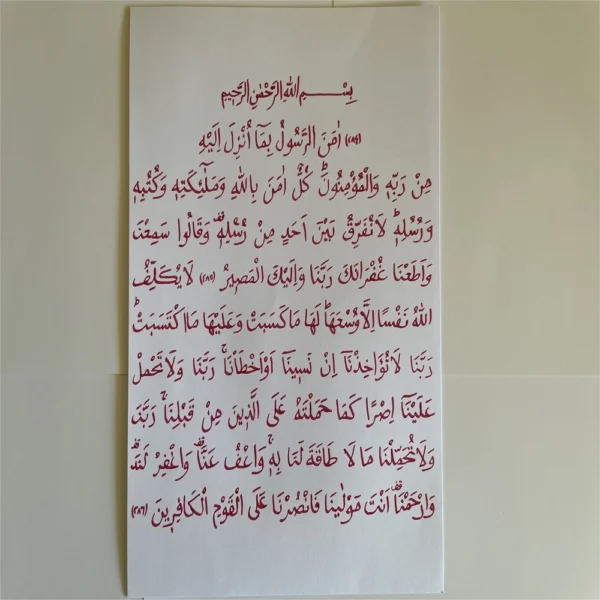 بِسْمِ اللهِ الرَّحْمٰنِ الرَّحِيمِ
﴿٢٨٤﴾ اٰمَنَ الرَّسُولُ بِمَٓا اُنْزِلَ اِلَيْهِ
مِنْ رَبِّهِ وَالْمُؤْمِنُونَۜ كُلٌّ اٰمَنَ بِاللهِ وَمَلٰٓئِكَتِهِ وَكُتُبِهِ
وَرُسُلِهِۜ لَا نُفَرِّقُ بَيْنَ اَحَدٍ مِنْ رُسُلِهِۗ وَقَالُوا سَمِعْنَا
وَاَطَعْنَا غُفْرَانَكَ رَبَّنَا وَاِلَيْكَ الْمَصِيرُ ﴿٢٨٥﴾ لَا يُكَلِّفُ
اللهُ نَفْسًا اِلَّا وُسْعَهَاۜ لَهَا مَا كَسَبَتْ وَعَلَيْهَا مَا اكْتَسَبَتْۜ
رَبَّنَا لَا تُؤَاخِذْنَٓا اِنْ نَسِينَٓا اَوْ اَخْطَأْنَاۚ رَبَّنَا وَلَا تَحْمِلْ
عَلَيْنَٓا اِصْرًا كَمَا حَمَلْتَهُ عَلَى الَّذِينَ مِنْ قَبْلِنَاۚ رَبَّنَا
وَلَا تُحَمِّلْنَا مَا لَا طَاقَةَ لَنَا بِهِۚ وَاعْفُ عَنَّاۗ وَاغْفِرْ لَنَاۗ
وَارْحَمْنَاۗ اَنْتَ مَوْلٰينَا فَانْصُرْنَا عَلَى الْقَوْمِ الْكَافِرِينَ ﴿٢٨٦﴾